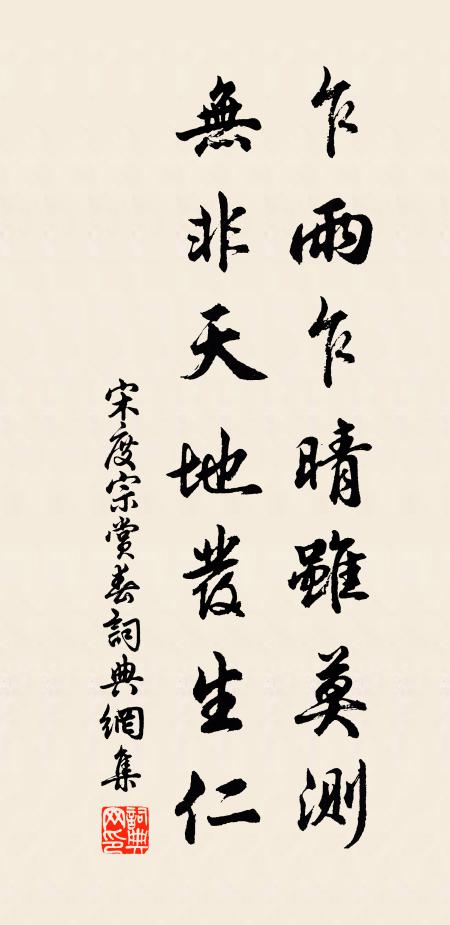 乍雨乍晴雖莫測
無非天地發生仁
宋度宗賞春詞典網集
詞典網印